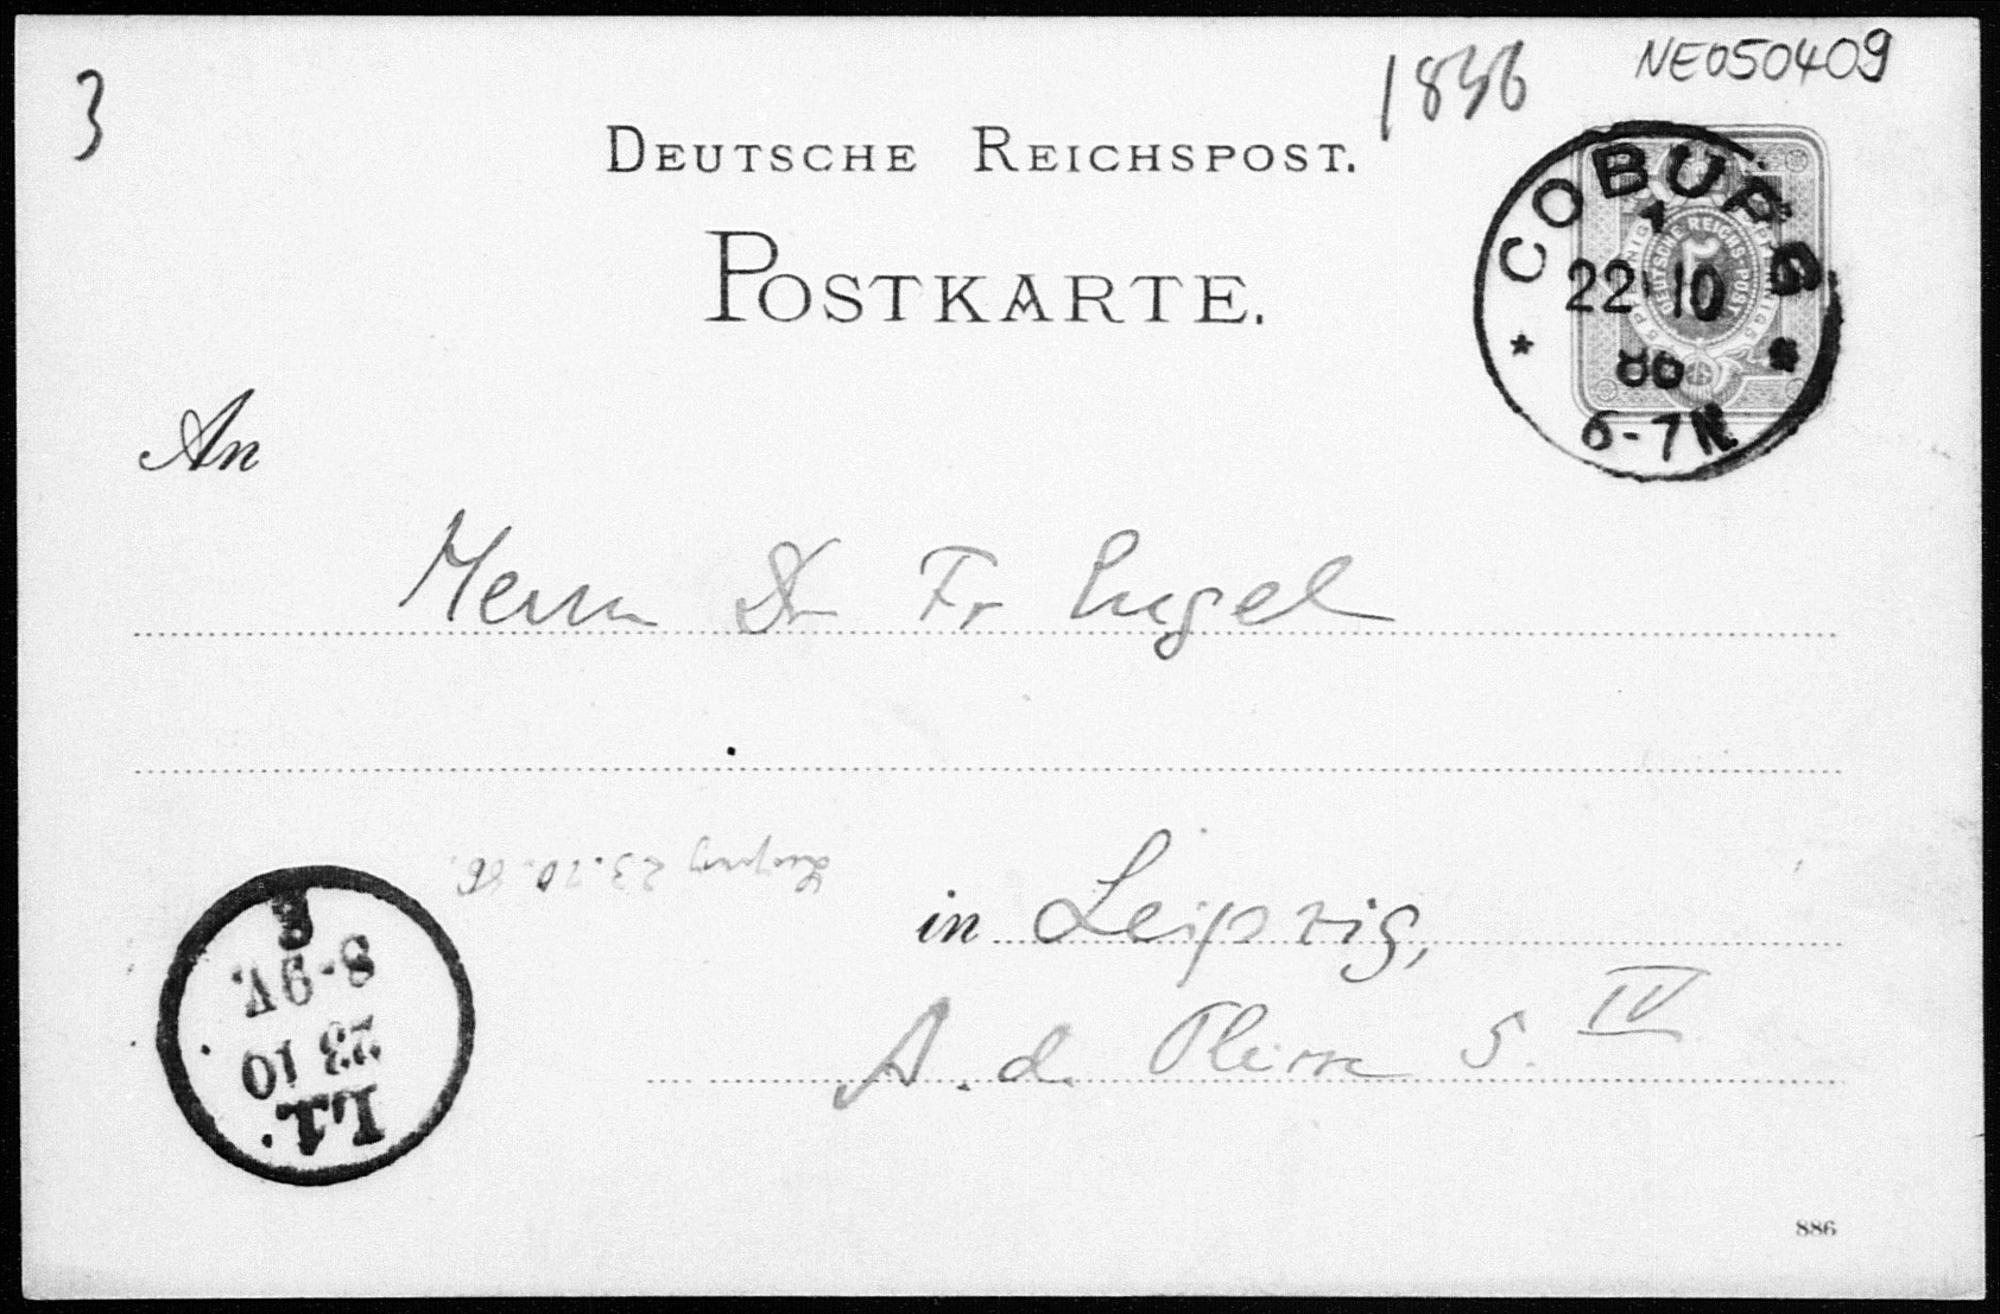 3
1886
NE050409
DEUTSCHE REICHSPOST.
POSTKARTE.
COBURG
1
22 10
86
6-7N
DEUTSCHE REICHS-POST
5
An
Herrn Dr Fr Engel
Leipzig 23.10.86.
in Leipzig,
A. d. Pleisse 5. IV
L.1.
23 10
8-9V.
886